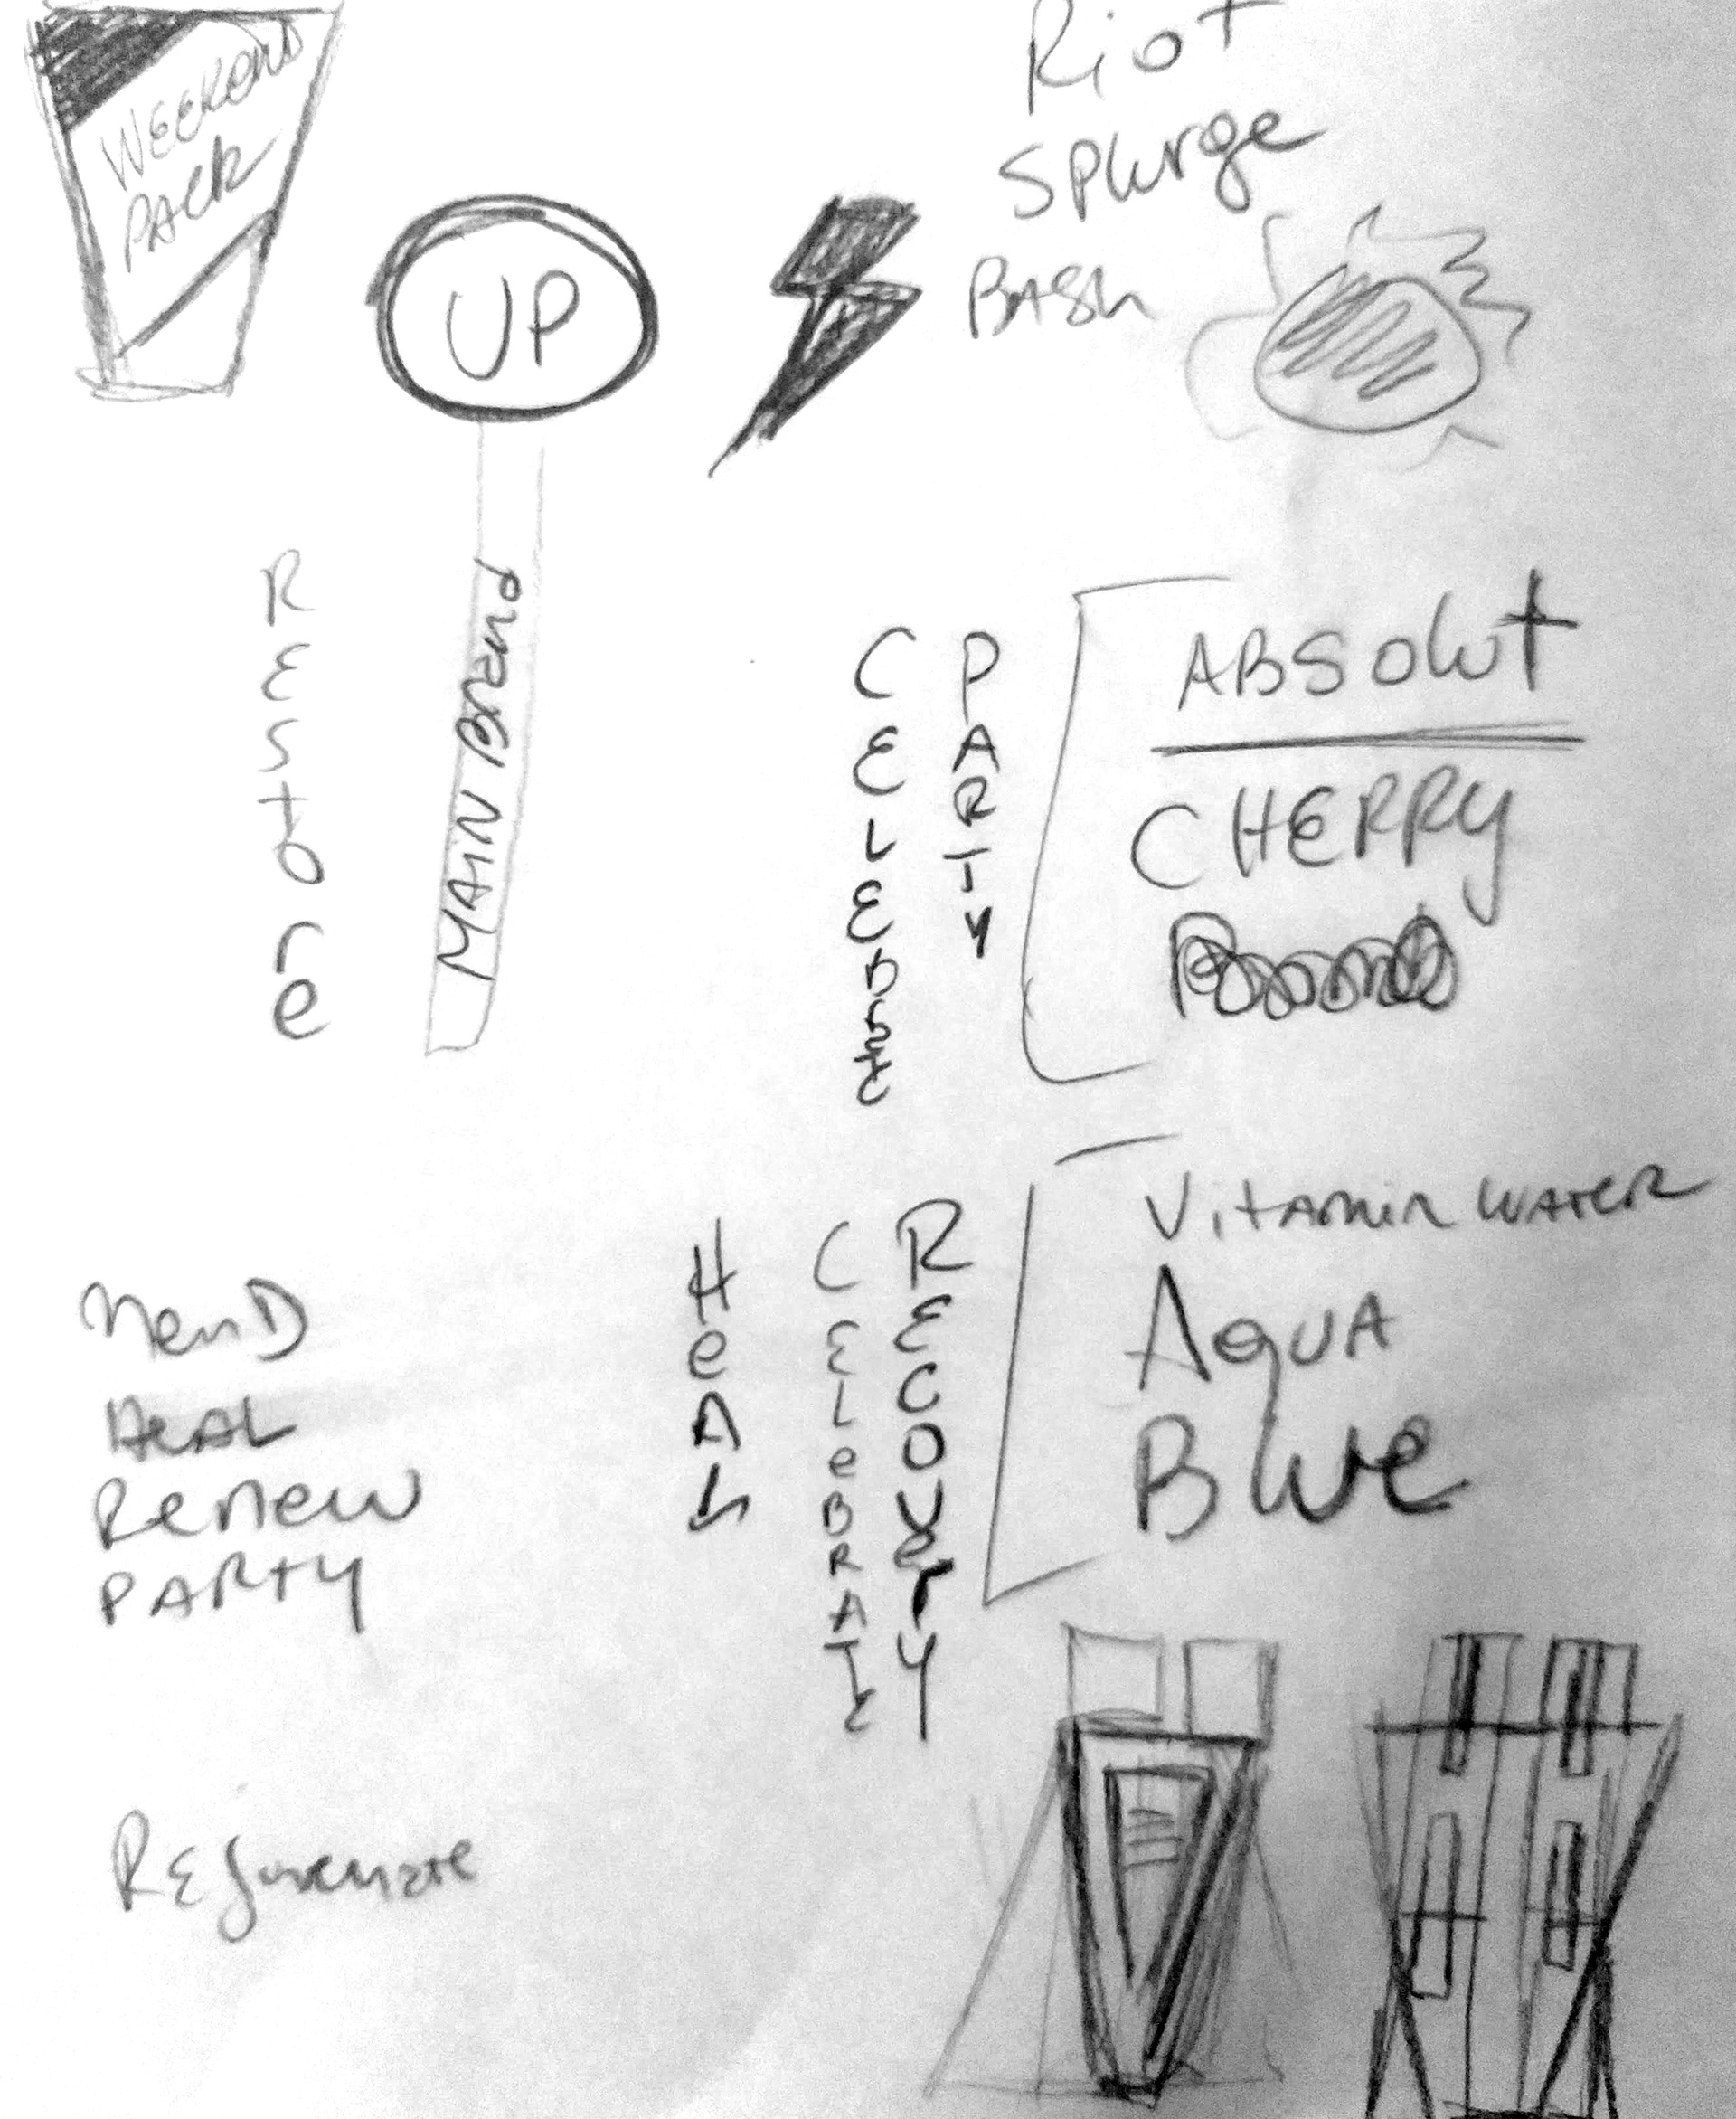 WEEKEND
PACK
Riot
Splurge
BASH
UP
MAIN BRAND
REStore
CELEBRATE
PARTY
ABSOLUT
CHERRY
VitAMIN WATER
AQUA
Blue
HEAL
CELEBRATE
RECOVERY
MenD
HEAL
Renew
PARTY
REJuvenate